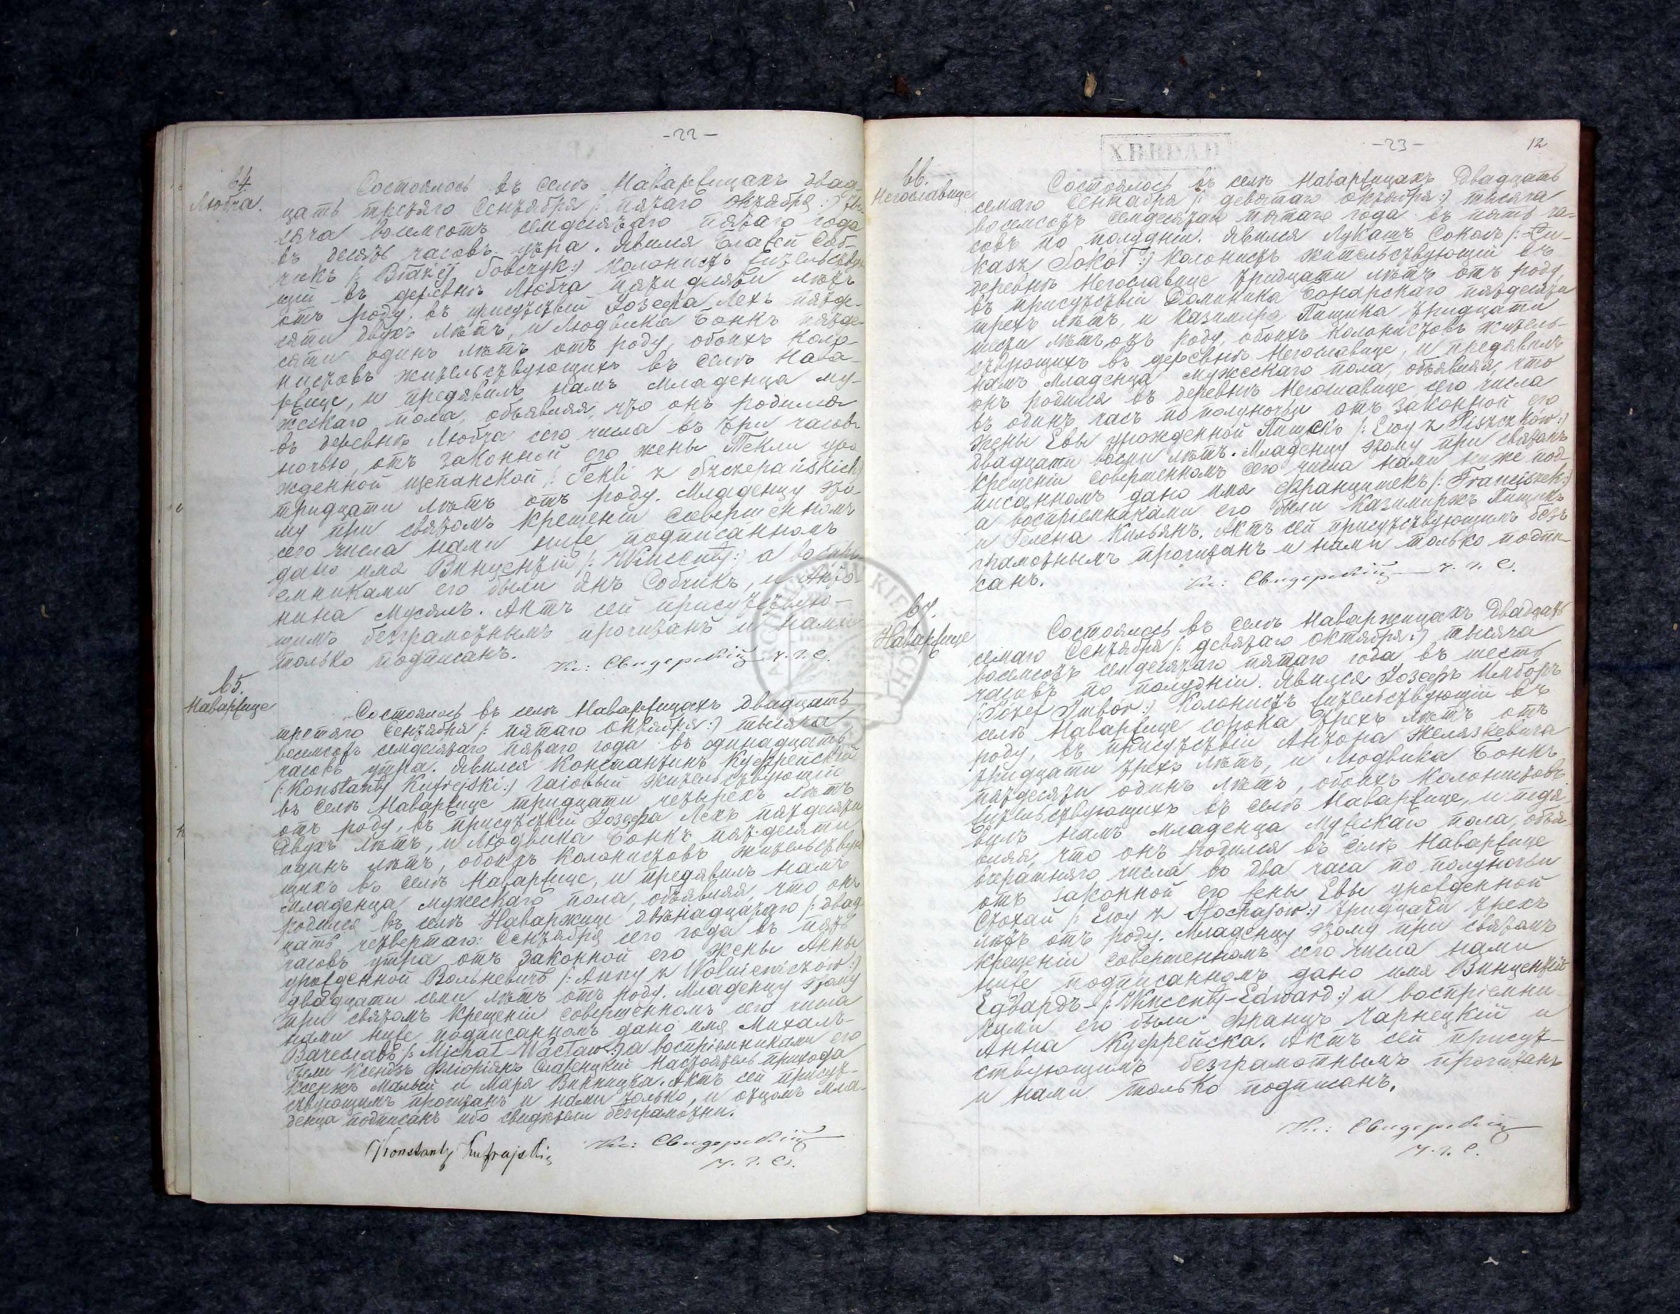 -22-
64.
Любча.
Состоялось въ селѣ Наваржицахъ двад-
цать третяго Сентября /: пятаго октября :/ ты-
сяча восемсотъ семдесятаго пятаго года
въ десять часовъ утра. Явился Блажей Соб-
чикъ /: Błażej Sobczyk :/ колонистъ жительствую-
щій въ деревнѣ Любча лѣтъ
отъ роду, въ присутствіи Іозефа Лехъ пятде-
сяти двухъ лѣтъ, и Людвика Бонкъ пятде-
сяти одинъ лѣтъ отъ роду, обоихъ коло-
нистовъ жительствующихъ въ селѣ Нава-
ржице, и предявилъ намъ младенца му-
жескаго пола, объявляя, что онъ родился
въ деревнѣ Любча сего числа въ три часовъ
ночью, отъ законной его жены Текли уро-
жденной Щепанской /: Tekli z Szczepańskich :/
тридцати лѣтъ отъ роду. Младенцу это-
му при святомъ крещеніи совершенномъ
сего числа нами ниже подписанномъ
дано имя Винценты /: Wincenty :/ а воспрі-
емниками его были Янъ Собчикъ, и Анто-
нина Мусялъ. Актъ сей присутствую-
щимъ безграмотнымъ прочитанъ и нами
только подписанъ.
Кс: Свидерскій Ч. г. С.
65.
Наваржице
Состоялось въ селѣ Наваржицахъ двадцать
третяго Сентября /: пятаго октября :/ тысяча
восемсотъ семдесятаго пятаго года въ одинадцать
часовъ утра. Явился Константинъ Куфрейскій
/: Konstanty Kufrejski :/ гаіовый жительствующій
въ селѣ Наваржице тридцати четырехъ лѣтъ
отъ роду, въ присутствіи Іозефа Лехъ пятдесяти
двухъ лѣтъ, и Людвика Бонкъ пятдесяти
одинъ лѣтъ, обоихъ колонистовъ жительствую-
щихъ въ селѣ Наваржице, и предявилъ намъ
младенца мужескаго пола, объявляя, что онъ
родился въ селѣ Наваржице двѣнадцатаго /: двад-
цать четвертаго: Сентября сего года въ пять
часовъ утра отъ законной его жены Анны
урожденной Вольневичъ /: Anny z Wolniewiczów :/
двадцати семи лѣтъ отъ роду. Младенцу этому
при святомъ крещеніи совершенномъ сего числа
нами ниже подписанномъ дано имя Михалъ-
Вацславъ /: Michał-Wacław :/ а воспріемниками его
были Ксендзъ Флоріянъ Настоятель прихода
и Марія Винницка. Актъ сей присут-
ствующимъ прочитанъ и нами только, и отцомъ мла-
денца подписанъ ибо свидѣтели безграмотни.
Konstanty Kufrajski
Кс: Свидерскій
Ч. г. С.
-23-
12
66.
Негославице
Состоялось въ селѣ Наваржицахъ двадцать
семаго Сентября /: девятаго октября :/ тысяча
восемсотъ семдесятаго пятаго года въ пять ча-
совъ по полудніи. Явился Лукашъ Соколъ /: Łu-
kasz Sokoł :/ колонистъ жительствующій въ
деревнѣ Негославице тридцати лѣтъ отъ роду,
въ присутствіи Доминика Бонарскаго пятдесяти
трехъ лѣтъ, и Казимира Пищика тридцати
лѣтъ отъ роду, обоихъ колонистовъ житель-
ствующихъ въ деревнѣ Негославице, и предявилъ
намъ младенца мужескаго пола, объявляя, что
онъ родился въ деревнѣ Негославице сего числа
въ одинъ часъ по полуночи отъ законной его
жены Евы урожденной Пищекъ /: Ewy z Piszczków :/
двадцати восми лѣтъ. Младенцу этому при святомъ
крещеніи совершенномъ сего числа нами ниже под-
писанномъ дано имя Францишекъ /: Franciszek :/
а воспріемниками его были Казимиръ Пищикъ
и Гелена Кильянъ. Актъ сей присутствующимъ без-
грамотнымъ прочитанъ и нами только подпи-
санъ.
Кс: Свидерскій Ч. г. С.
67
Наваржице
Состоялось въ селѣ Наваржицахъ двадцать
семаго Сентября /: девятаго октября :/ тысяча
восемсотъ семдесятаго пятаго года въ шесть
часовъ по полудніи. Явился Іозефъ Имборъ
/: Józef Imbor :/ колонистъ жительствующій въ
селѣ Наваржице сорока трехъ лѣтъ отъ
роду, въ присутствіи Антона Желязкевича
тридцати трехъ лѣтъ, и Людвика Бонкъ
пятдесяти одинъ лѣтъ, обоихъ колонистовъ
жительствующихъ въ селѣ Наваржице, и предя-
вилъ намъ младенца мужескаго пола, объя-
вляя, что онъ родился въ селѣ Наваржице
вчератняго числа въ два часа по полуночи
отъ законной его жены Евы урожденной
Стохай /: Ewy z Stochajów :/ тридцати трехъ
лѣтъ отъ роду. Младенцу этому при святомъ
крещеніи совершенномъ сего числа нами
ниже подписанномъ дано имя Винцентій-
Едвардъ /: Wincenty-Edward :/ и воспріемни-
ками его были Францъ Чарнецкій и
Анна Куфрейска. Актъ сей присут-
ствующимъ безграмотнымъ прочитанъ
и нами только подписанъ.
Кс: Свидерскій
Ч. г. С.